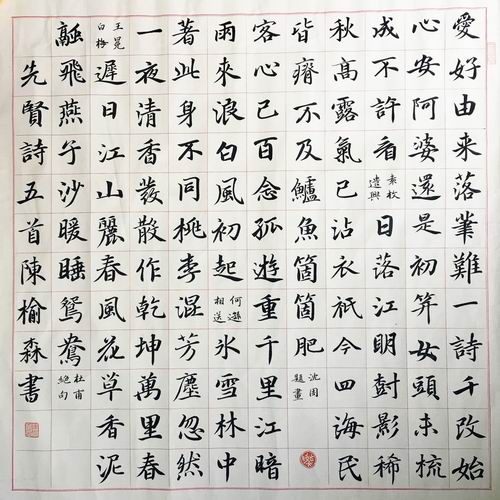 愛好由来落筆難一詩千改始
心安阿婆還是初笄女頭未梳
成不許看袁枚遣興日落江明樹影稀
秋高露氣已沾衣祇今四海民
皆瘠不及鱸魚箇箇肥沈周題畫
客心已百念孤遊重千里江暗
雨來浪白風初起何遜相送冰雪林中
著此身不同桃李混芳塵忽然
一夜清香發散作乾坤萬里春
王冕白梅遲日江山麗春風花草香泥
融飛燕子沙暖睡鴛鴦杜甫絶句
先賢詩五首陳榆森書